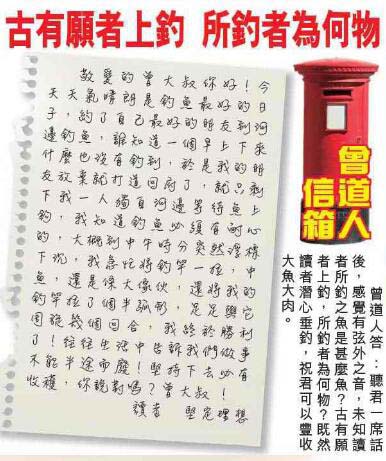 古有願者上釣 所釣者為何物
敬愛的曾大叔你好！今
天天氣晴朗是釣魚最好的日
子，約了自己最好的朋友到河
邊釣魚，誰知道一個早上下來
什麼也沒有釣到，於是我的朋
友放棄就打道回府了，就只剩
下我一人獨自河邊等待魚上
鈎，我知道釣魚必須有耐心
的，大概到中午時分突然浮標
下沉，我急忙將釣竿一拉，中
魚，還是條大傢伙，還將我的
釣竿拉了個半弧形，足足與它
周旋幾個回合，我終於勝利
了！往往生活中告訴我們做事
不能半途而廢！堅持下去必有
收穫，你說對嗎？曾大叔！
讀者 堅定理想
曾道人
信箱
曾道人答：聽君一席話
後，感覺有弦外之音，未知讀
者所釣之魚是甚麼魚？古有願
者上釣，所釣者為何物？既然
讀者潛心垂釣，祝君可以豐收
大魚大肉。